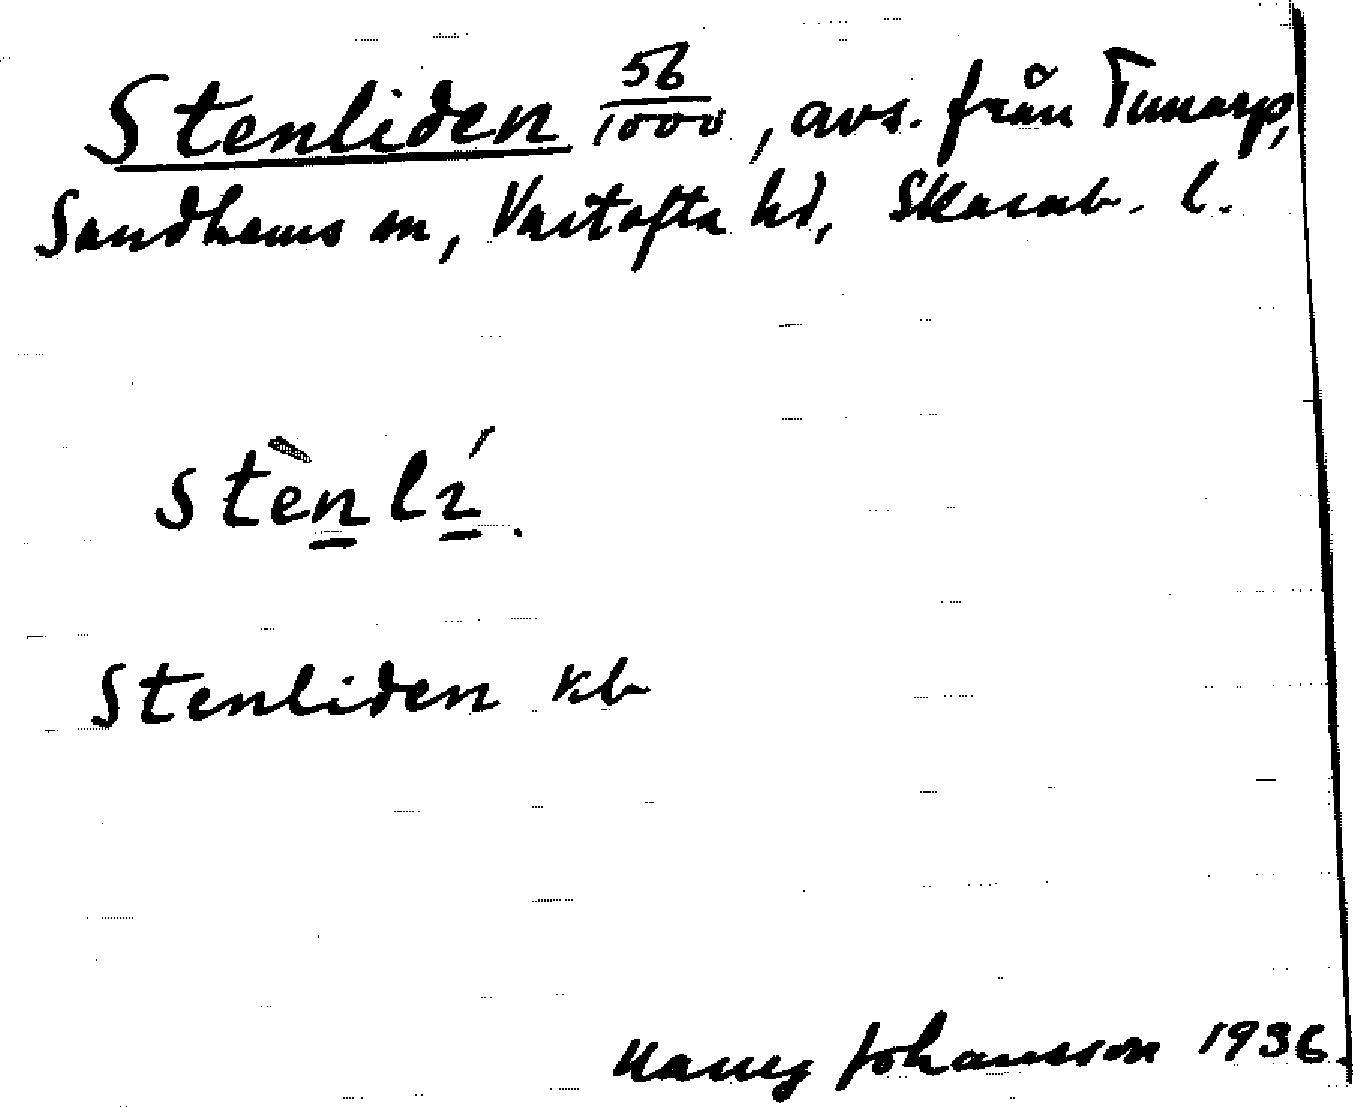 Stenliden 56/1000, avs. från Tunarp,
Sandhems sn, Vartofta hd, Skarab. l.
Stènlí.
Stenliden kb
Harry Johansson 1936.